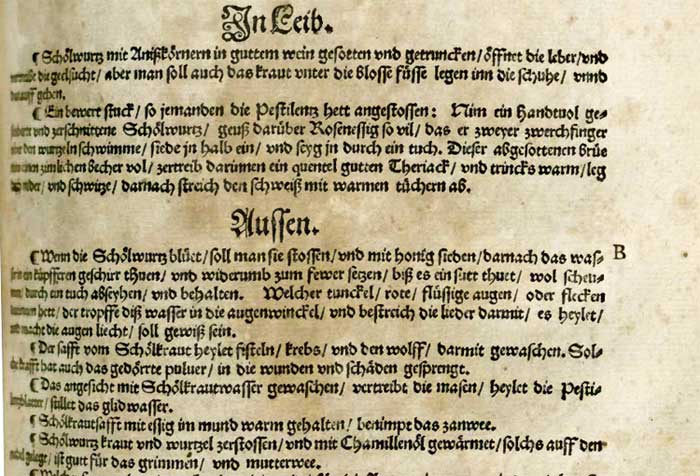 In Leib.
¶ Schölwurtz mit Anißkörnern in guttem wein gesotten vnd getruncken/ öffnet die leber/ vnd
die geelsucht/ aber man soll auch das kraut vnter die blosse füsse legen inn die schuhe/ vnnd
gehen.
¶ Ein bewert stuck/ so jemanden die Pestilentz hett angestossen: Nim ein Handtuol ge-
vnd zerschnittene Schölwurtz/ geuß darüber Rosenessig so vil/ das er zweyer zwerchfinger
den wurtzeln schwimme/ siede jn halb ein/ vnd seyg jn durch ein tuch. Dieser abgesottenen brüe
zimlichen becher vol/ zertreib darinnen ein quentel gutten Theriack/ vnd trincks warm/ leg
vnd schwitze/ darnach streich den schweiß mit warmen tüchern ab.
Aussen.
¶ Wenn die Schölwurtz blüet/ soll man sie stossen/ vnd mit honig sieden/ darnach das was-
küpfferen geschirr thuen/ vnd widerumb zum fewer setzen/ biß es ein sutt thuet/ wol scheu-
durch ein tuch abseyhen/ vnd behalten. Welcher tunckel/ rote/ flüssige augen/ oder flecken
hett/ der tropffe diß wasser in die augenwinckel/ vnd bestreich die lieder darmit/ es heylet/
macht die augen liecht/ soll gewiß sein.
B
¶ Der safft vom Schölkraut heylet fisteln/ krebs/ vnd den wolff/ darmit gewaschen. Sol-
krafft hat auch das gedörrte puluer/ in die wunden vnd schäden gesprengt.
¶ Das angesicht mit Schölkrautwasser gewaschen/ vertreibt die masen/ heylet die Pesti-
stillet das glidwasser.
¶ Schölkrautsafft mit essig im mund warm gehalten/ benimpt das zanwee.
¶ Schölwurtz kraut vnd wurtzel zerstossen/ vnd mit Chamillenöl gewärmet/ solchs auff den
nabel gelegt/ ist gutt für das grimmen/ vnd mutterwee.